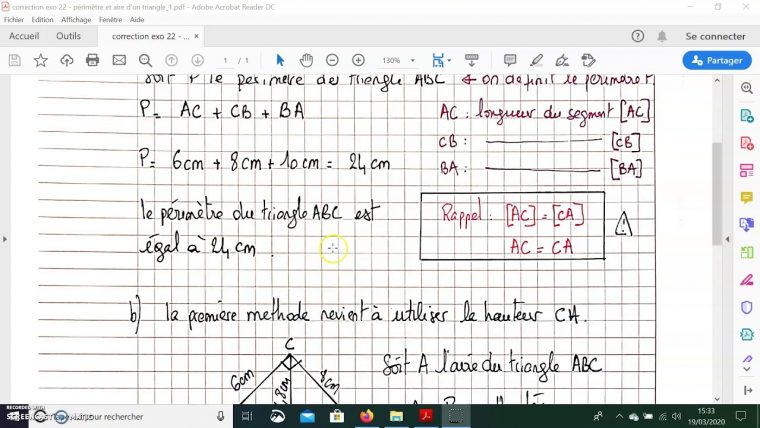 correction exo 22 - périmètre et aire d'un triangle_1.pdf - Adobe Acrobat Reader DC
Fichier Edition Affichage Fenêtre Aide
Accueil Outils correction exo 22 - ... × Se connecter
1 / 1 130% Partager
Soit P le périmètre du triangle ABC ← on définit le périmètre P
P= AC + CB + BA
AC : longueur du segment [AC]
CB : [CB]
BA : [BA]
P= 6cm + 8cm + 10cm = 24cm
le périmètre du triangle ABC est
égal à 24 cm.
Rappel : [AC] = [CA]
AC = CA
b) la première methode revient à utiliser la hauteur CH.
C
6cm
4,8cm
8cm
Soit A l'aire du triangle ABC
RECORDED WITH
SCREENCAST
pour rechercher
15:33
19/03/2020